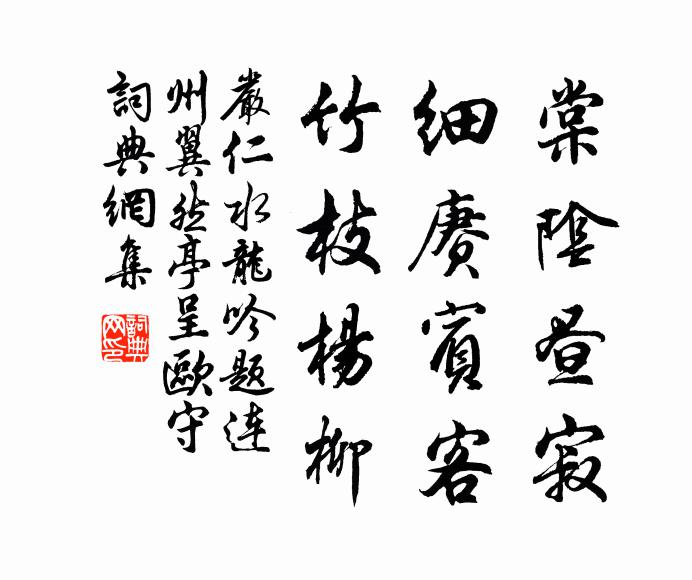 棠陰昼寂
細賡賓客
竹枝楊柳
嚴仁水龍吟題連
州翼然亭呈歐守
詞典網集
詞典
网印